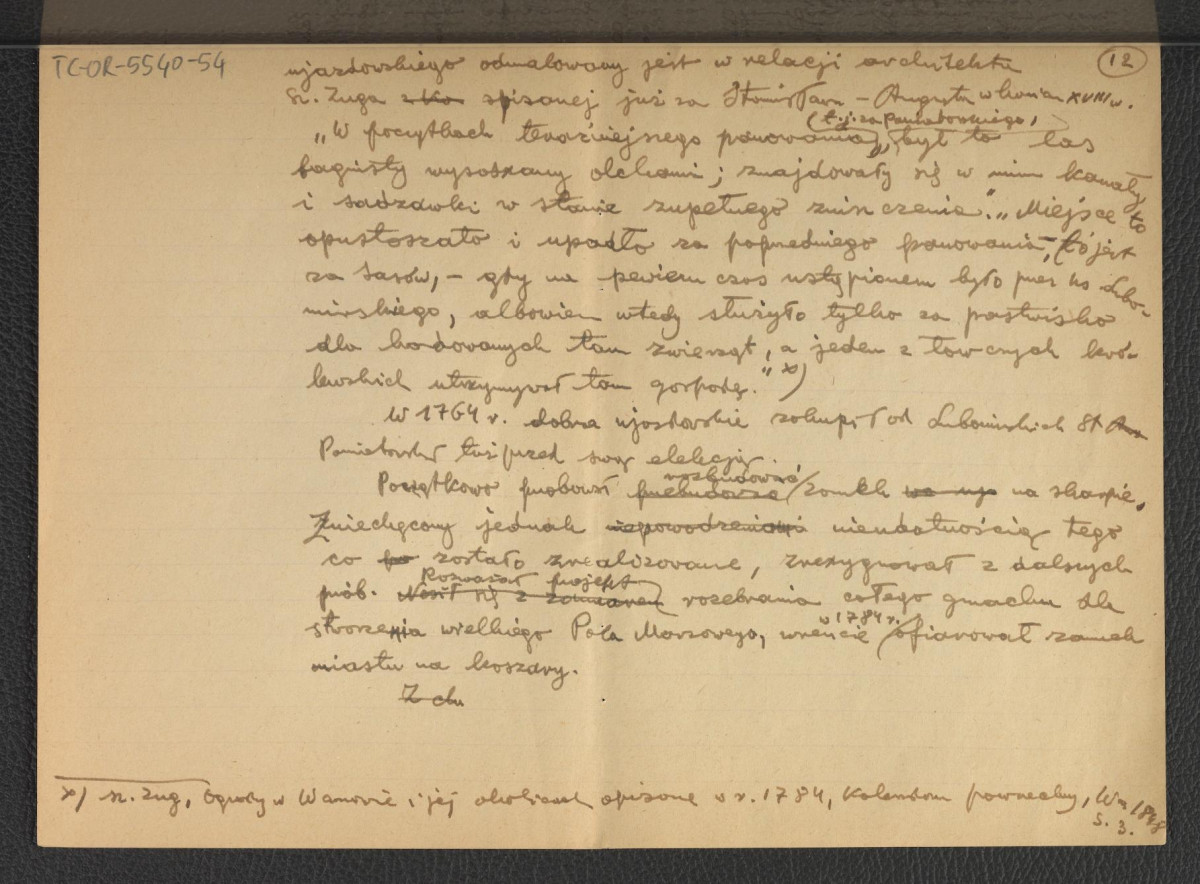 TC-OR-5540-54
12
ujazdowskiego odmalowany jest w relacji architekta
Sz. Zuga spisanej już za Stanisława - Augusta w końcu XVIII w.
(t.j. za Poniatowskiego,
„W początkach teraźniejszego panowania, był to las
bagnisty wysadzany olchami; znajdowały się w nim kanały
i sadzawki w stanie zupełnego zniszczenia." „Miejsce to
opustoszało i upadło za poprzedniego panowania, (to jest
za Sasów, - gdy na pewien czas ustąpionem było przez ks Lubo-
mirskiego, albowiem wtedy służyło tylko za pastwisko
dla hodowanych tam zwierząt, a jeden z łowczych kró-
lewskich utrzymywał tam gospodę." x)
W 1764 r. dobra ujazdowskie zakupił od Lubomirskich St
Poniatowski tuż przed swą elekcją.
rozbudować
Początkowo próbował przebudować zamek na skarpie.
Zniechęcony jednak niepowodzeniami nieudatnością tego
co zostało zrealizowane, zrezygnował z dalszych
Rozważał projekt
prób. Nosił się z zamiarem rozebrania całego gmachu dla
w 1784 r.
stworzenia wielkiego Pola Marsowego, wreszcie ofiarował zamek
miastu na koszary.
Z chw
x) Sz. Zug, Ogrody w Warszawie i jej okolicach opisane w r. 1784, Kalendarz powszechny, W-wa 1848
s. 3.